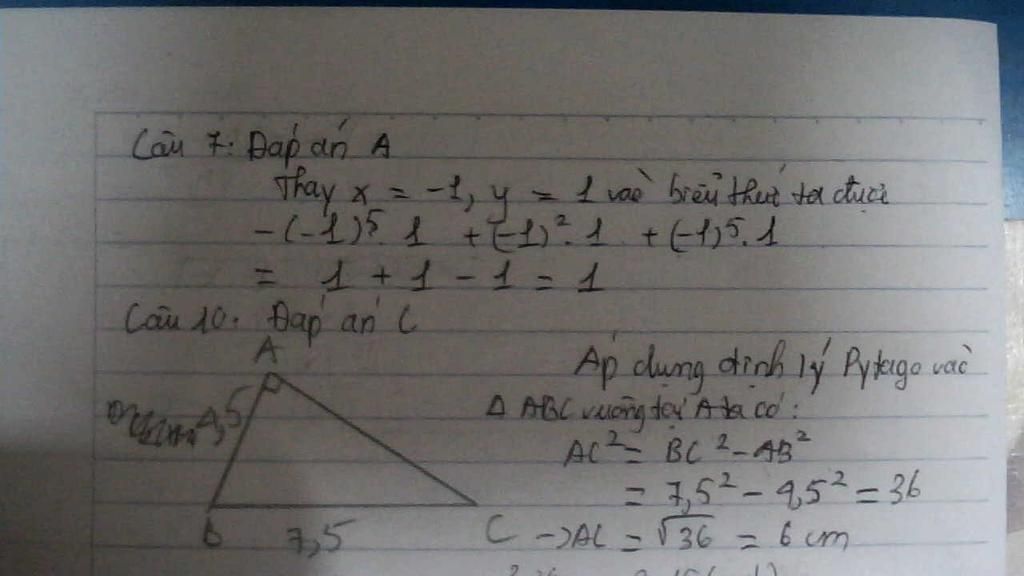 Câu 7: Đáp án A
Thay x = -1, y = 1 vào biểu thức ta được
-(-1)⁵. 1 + (-1)². 1 + (-1)⁵. 1
= 1 + 1 - 1 = 1
Câu 10. Đáp án C
A
4,5
B
7,5
C
Áp dụng định lý Pytago vào
Δ ABC vuông tại A ta có:
AC² = BC² - AB²
= 7,5² - 4,5² = 36
→ AC = √36 = 6 cm